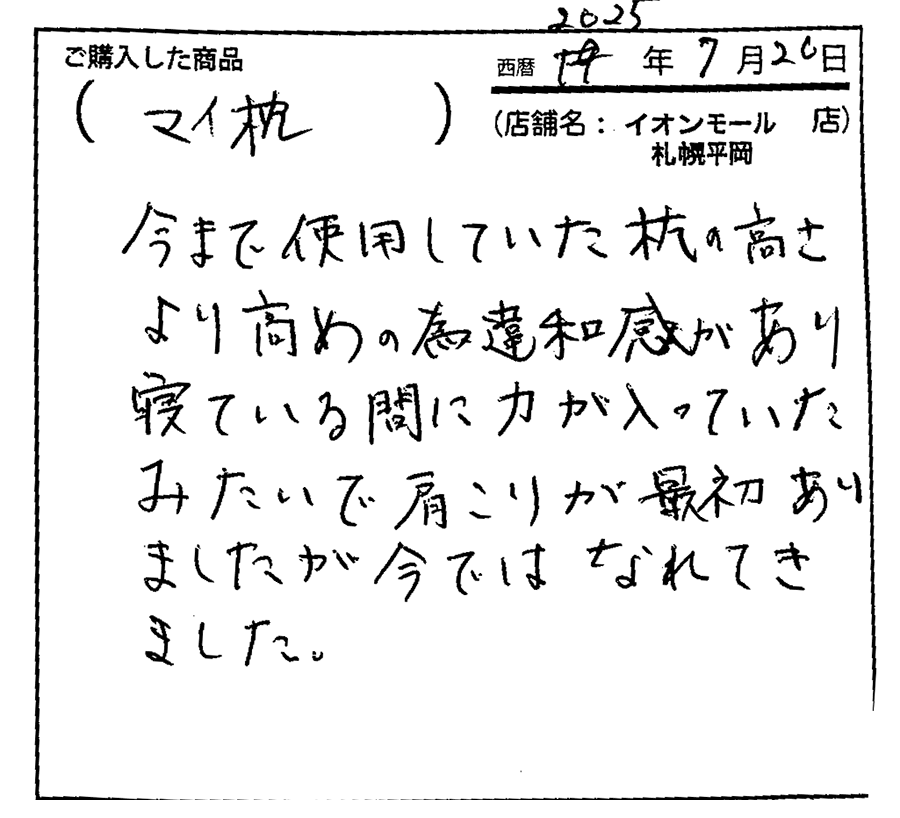 2025
ご購入した商品
西暦 年 7月26日
(マイ枕)
(店舗名: イオンモール 店)
札幌平岡
今まで使用していた枕の高さ
より高めの為違和感があり
寝ている間に力が入っていた
みたいで肩こりが最初あり
ましたが今ではなれてき
ました。